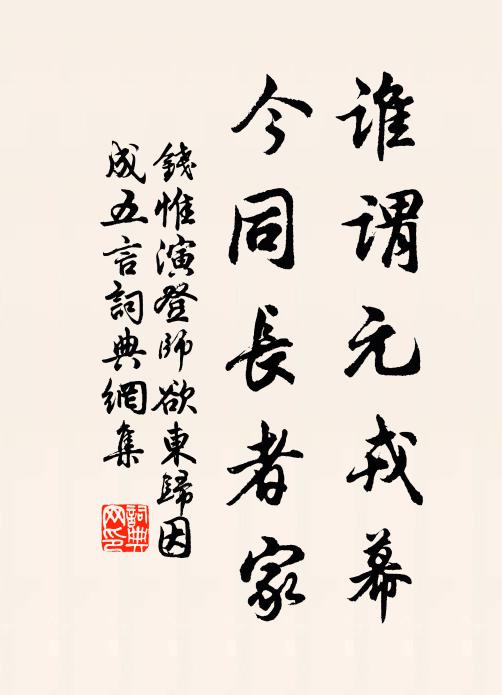 誰謂元戎幕
今同長者家
錢惟演登師欲東歸因
成五言詞典網集
詞典网印